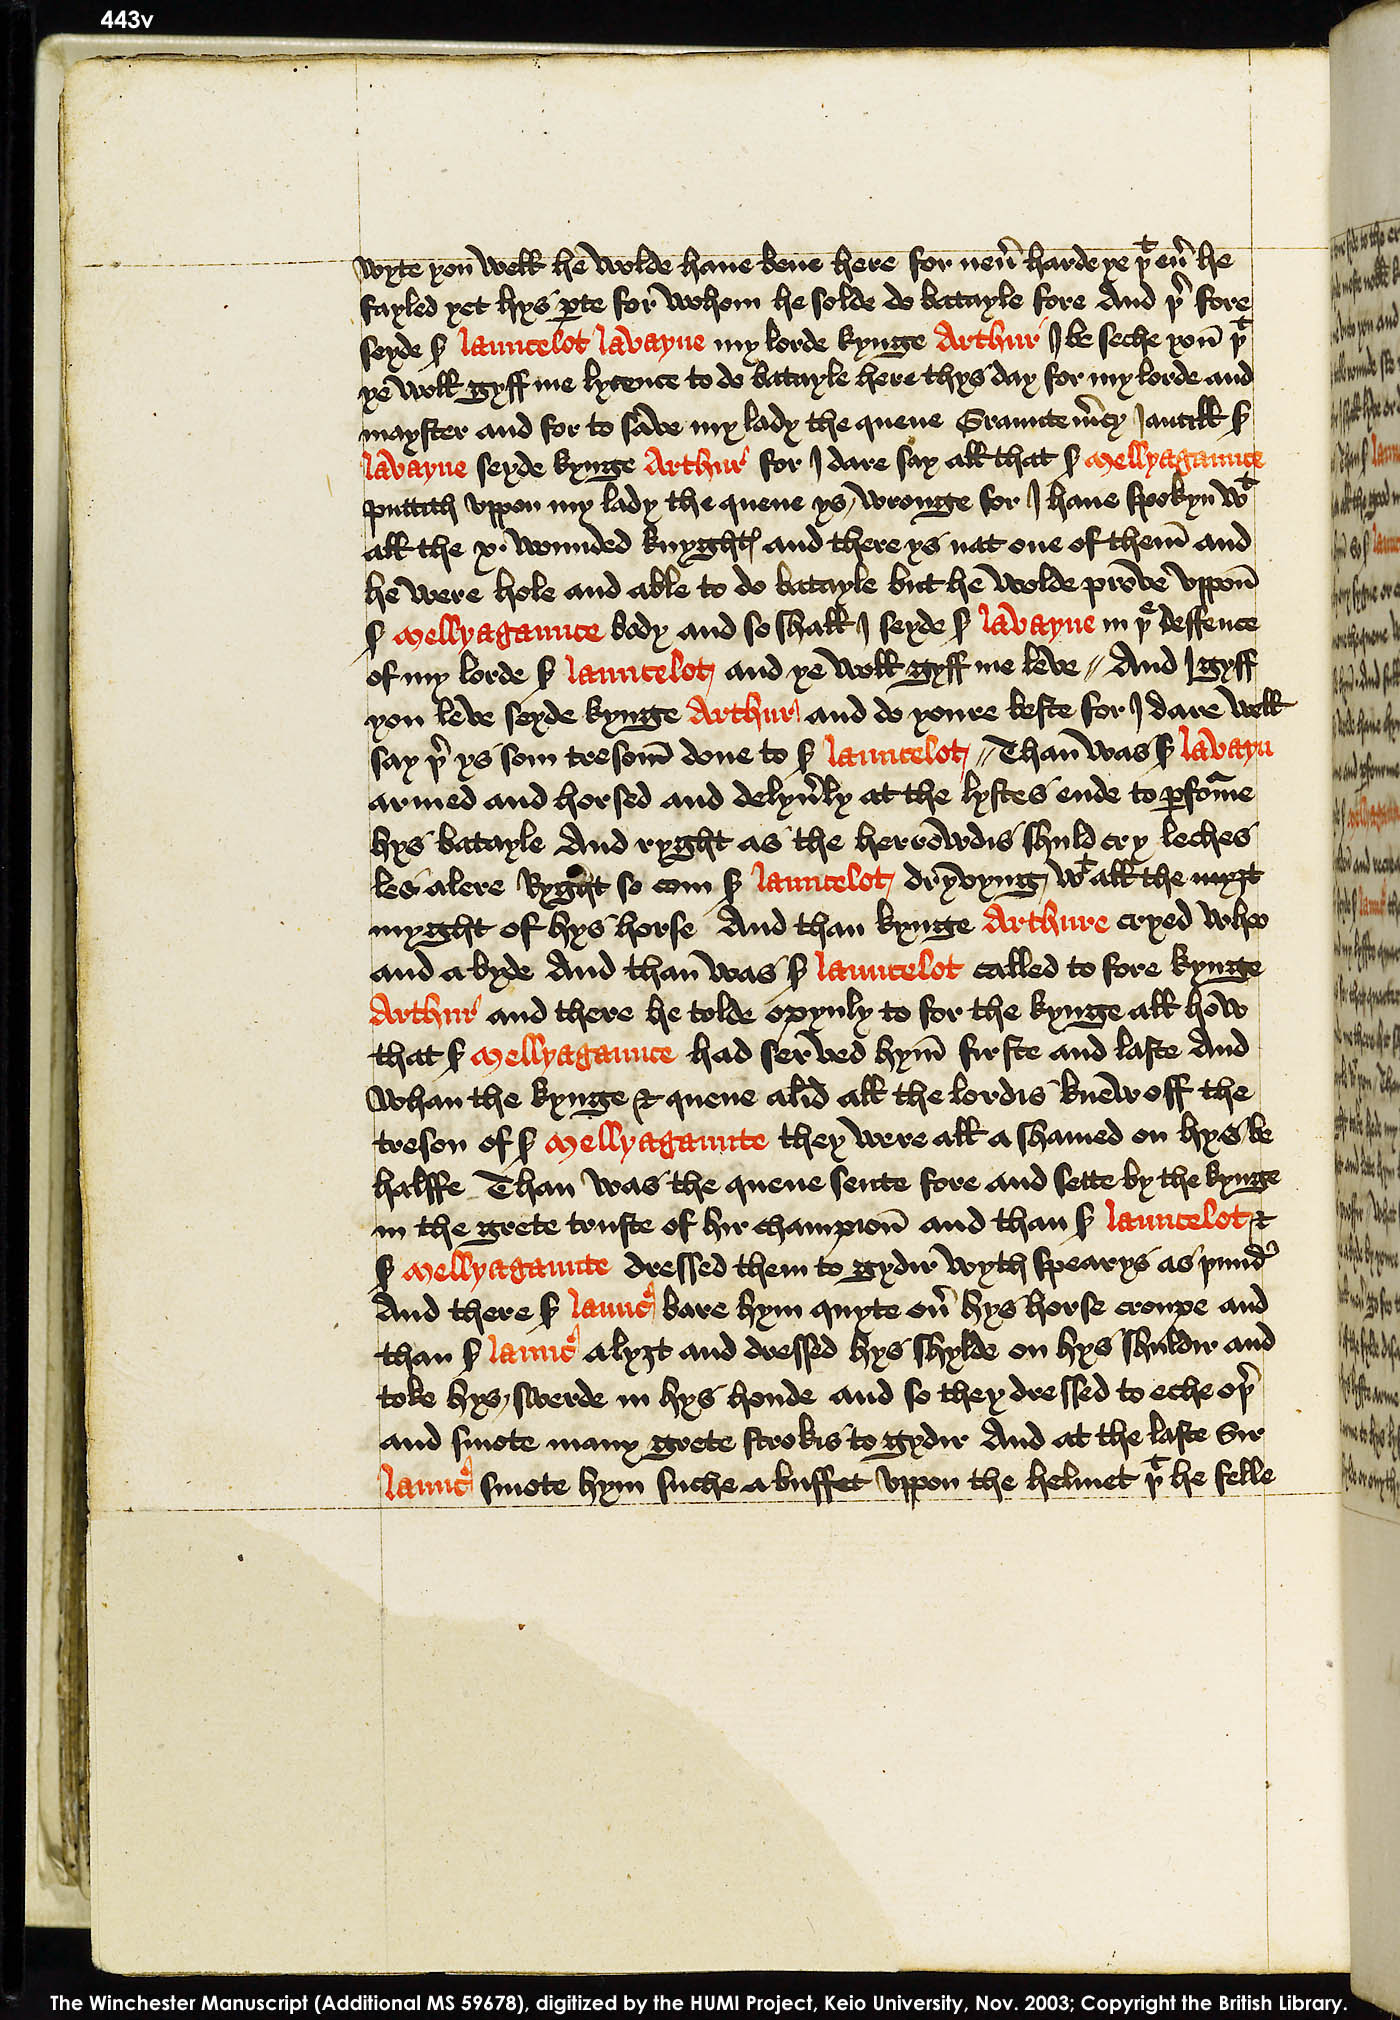 443v
wyte you well he wolde haue bene here for neu̾ harde ye þ^t eu̾ he
fayled yet hys ꝑte for whom he solde do batayle fore And þ̾ fore
seyde S̾ launcelot lavayne my lorde kynge Arthur I be seche you þ^t
ye woll gyff me lycence to do batayle here thys day for my lorde and
mayster and for to save my lady the quene Graunte m̾cy Jantill S̾
lavayne seyde kynge Arthur for I dare say all that S̾ Mellyagaunce
puttith vppon my lady the quene ys wronge for I haue spokyn w^t
all the x. wounded knyghtꝭ and there ys nat one of theym̄ and
he were hole and able to do batayle but he wolde prove vppon̄
S̾ Mellyagaunce body and so shall I seyde S̾ lavayne in þ^e deffence
of my lorde S̾ launcelot and ye woll gyff me leve // And I gyff
you leve seyde kynge Arthur and do youre beste for I dare well
say þ̾ ys som tresoun̄ done to S̾ launcelot // Than was S̾ lavayn
armed and horsed and delyu̾ly at the lystes ende to ꝑfo^rme
hys batayle And ryght as the herrowdis shuld cry leches
les alere Ryght so com S̾ launcelot dryvyng w^t all the myȝt
myght of hys horse And than kynge Arthure cryed whoo
and a byde And than was S̾ launcelot called to fore kynge
Arthur and there he tolde opynly to for the kynge all how
that S̾ Mellyagaunce had serued hym̄ firste and laste And
whan the kynge & quene and all the lordis knew off the
treson of S̾ Mellyagaunte they were all a shamed on hys be
halffe Than was the quene sente fore and sette by the kynge
in the grete truste of hir champion̄ and than S̾ launcelot &
S̾ Mellyagaunte dressed them to gydir wyth spearys as þund̾
And there S̾ launc̾ bare hym quyte ou̾ hys horse croupe and
than S̾ launc̾ alyȝt and dressed hys shylde on hys shuldir and
toke hys swerde in hys honde and so they dressed to eche oþ̾
and smote many grete strokis to gydir And at the laste Sir
launc̾ smote hym suche a buffet vppon the helmet þ^t he felle
The Winchester Manuscript (Additional MS 59678), digitized by the HUMI Project, Keio University, Nov. 2003; Copyright the British Library.